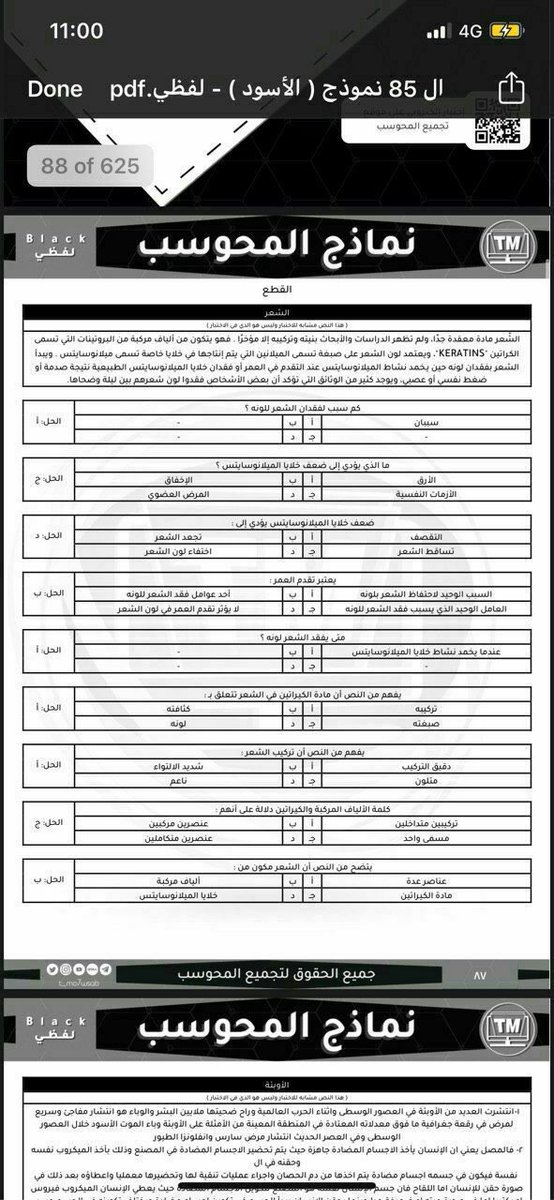 11:00
4G
Done
ال 85 نموذج ( الأسود ) - لفظي.pdf
تجميع المحوسب
88 of 625
Black
لفظي
نماذج المحوسب
TM
القطع
الشعر
( هذا النص مشابه للاختبار وليس هو الذي في الاختبار )
الشعر مادة معقدة جدًا، ولم تظهر الدراسات والأبحاث بنيته وتركيبه إلا مؤخرًا . فهو يتكون من ألياف مركبة من البروتينات التي تسمى
الكراتين "KERATINS"، ويعتمد لون الشعر على صبغة تسمى الميلانين التي يتم إنتاجها في خلايا خاصة تسمى ميلانوسايتس . ويبدأ
الشعر بفقدان لونه حين يخمد نشاط الميلانوسايتس عند التقدم في العمر أو فقدان خلايا الميلانوسايتس الطبيعية نتيجة صدمة أو
ضغط نفسي أو عصبي، ويوجد كثير من الوثائق التي تؤكد أن بعض الأشخاص فقدوا لون شعرهم بين ليلة وضحاها.
كم سبب لفقدان الشعر للونه ؟
سببان أ ب -
- جـ د -
الحل: أ
ما الذي يؤدي إلى ضعف خلايا الميلانوسايتس ؟
الأرق أ ب الإخفاق
الأزمات النفسية جـ د المرض العضوي
الحل: ج
ضعف خلايا الميلانوسايتس يؤدي إلى :
التقصف أ ب تجعد الشعر
تساقط الشعر جـ د اختفاء لون الشعر
الحل: د
يعتبر تقدم العمر :
السبب الوحيد لاحتفاظ الشعر بلونه أ ب أحد عوامل فقد الشعر للونه
العامل الوحيد الذي يسبب فقد الشعر للونه جـ د لا يؤثر تقدم العمر في لون الشعر
الحل: ب
متى يفقد الشعر لونه ؟
عندما يخمد نشاط خلايا الميلانوسايتس أ ب -
- جـ د -
الحل: أ
يفهم من النص أن مادة الكيراتين في الشعر تتعلق بـ :
تركيبه أ ب كثافته
صبغته جـ د لونه
الحل: أ
يفهم من النص أن تركيب الشعر :
دقيق التركيب أ ب شديد الالتواء
متلون جـ د ناعم
الحل: أ
كلمة الألياف المركبة والكيراتين دلالة على أنهم :
تركيبين متداخلين أ ب عنصرين مركبين
مسمى واحد جـ د عنصرين متكاملين
الحل: ج
يتضح من النص أن الشعر مكون من :
عناصر عدة أ ب ألياف مركبة
مادة الكيراتين جـ د خلايا الميلانوسايتس
الحل: ب
t_mo7wsab
جميع الحقوق لتجميع المحوسب
٨٧
Black
لفظي
نماذج المحوسب
TM
الأوبئة
( هذا النص مشابه للاختبار وليس هو الذي في الاختبار )
١-انتشرت العديد من الأوبئة في العصور الوسطى واثناء الحرب العالمية وراح ضحيتها ملايين البشر والوباء هو انتشار مفاجئ وسريع
لمرض في رقعة جغرافية ما فوق معدلاته المعتادة في المنطقة المعينة من الأمثلة على الأوبئة وباء الموت الأسود خلال العصور
الوسطى وفي العصر الحديث انتشار مرض سارس وانفلونزا الطيور
٢- فالمصل يعني ان الإنسان يأخذ الاجسام المضادة جاهزة حيث يتم تحضير الاجسام المضادة في المصنع وذلك بأخذ الميكروب نفسه
وحقنه في ال
نفسية فيكون في جسمه اجسام مضادة يتم اخذها من دم الحصان واجراء عمليات تنقية لها وتحضيرها معمليا واعطاؤه بعد ذلك في